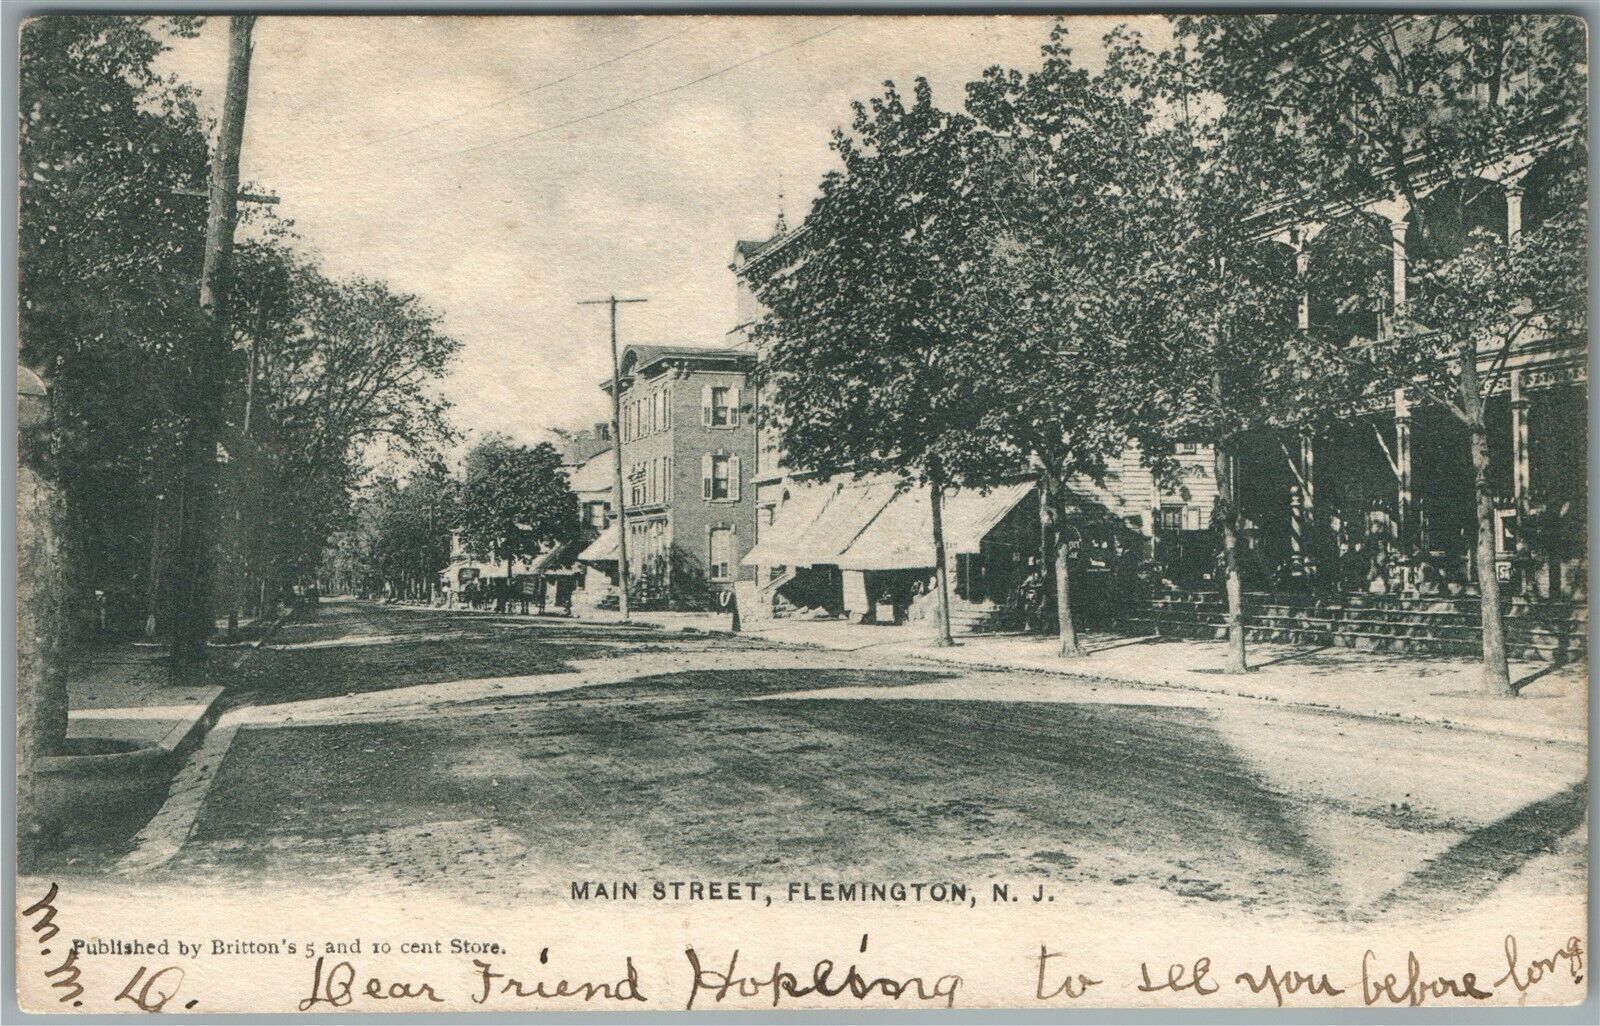 MAIN STREET, FLEMINGTON, N. J.
Published by Britton's 5 and 10 cent Store.
Dear Friend Hopking to see you before long.